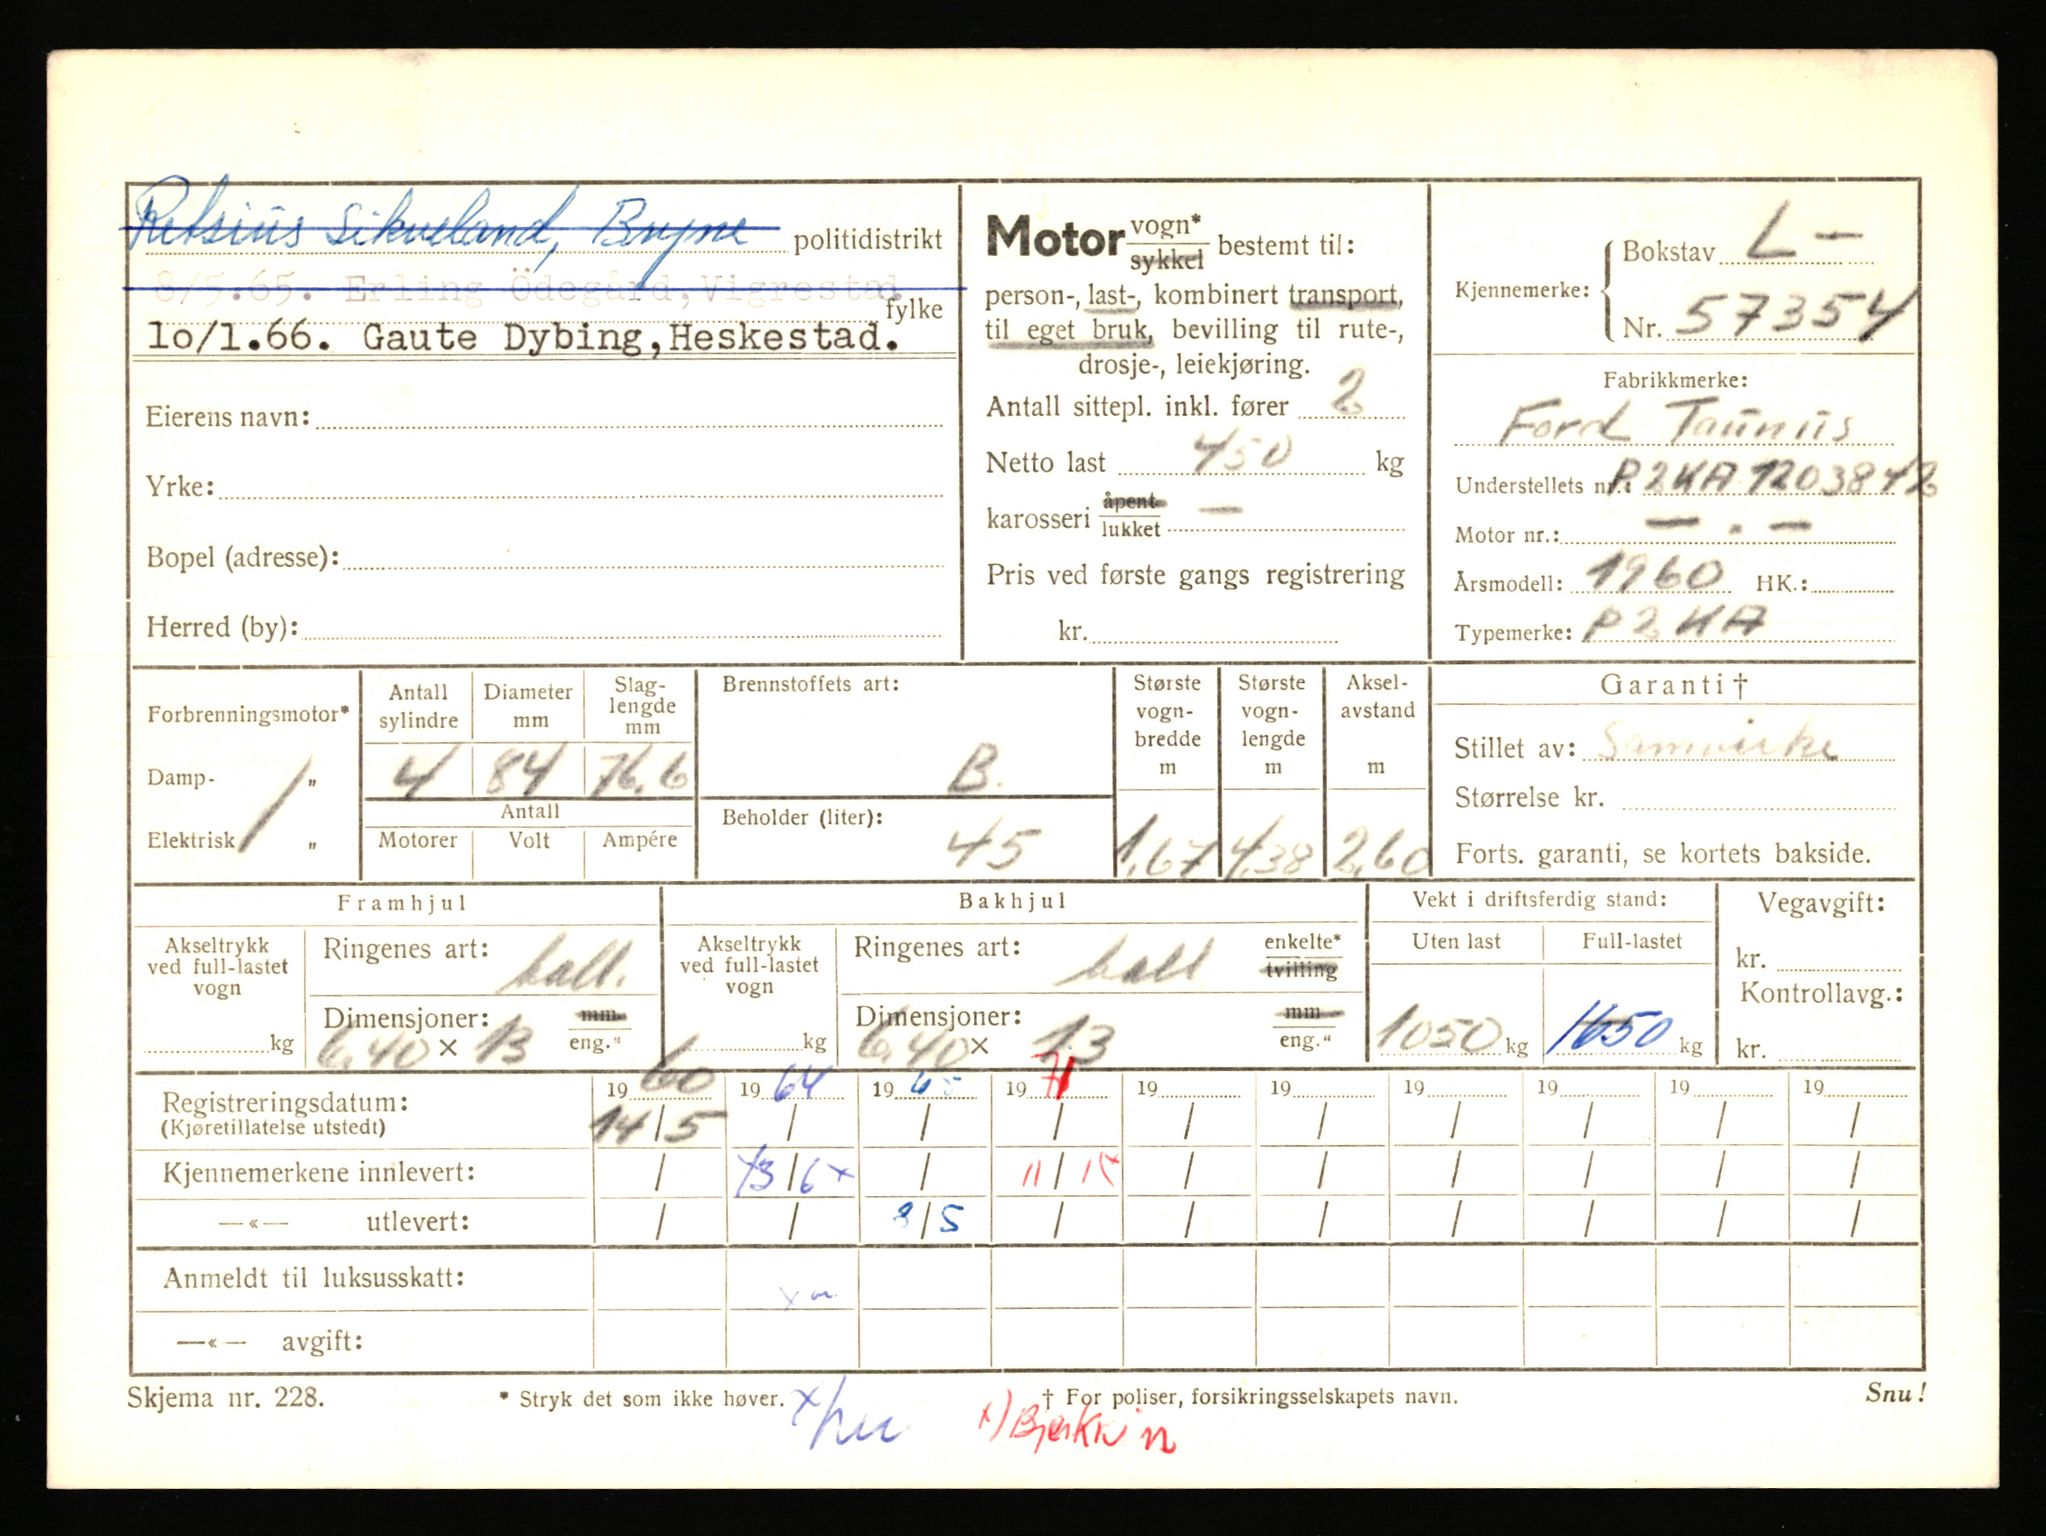 Retsius Sikveland, Bryne politidistrikt
8/5.65. Erling Ödegård, Vigrestad
fylke
1o/1.66. Gaute Dybing, Heskestad.
Eierens navn:
Yrke:
Bopel (adresse):
Herred (by):
Motor vogn* / sykkel bestemt til:
person-, last-, kombinert transport,
til eget bruk, bevilling til rute-,
drosje-, leiekjøring.
Antall sittepl. inkl. fører 2
Netto last 450 kg
karosseri åpent / lukket —
Pris ved første gangs registrering
kr.
Kjennemerke: Bokstav L –
Nr. 57354
Fabrikkmerke:
Ford Taunus
Understellets nr.: P2KA 1203842
Motor nr.: — . —
Årsmodell: 1960 HK.:
Typemerke: P2KA
Forbrenningsmotor*
Damp- „
Elektrisk „
Antall sylindre 4
Diameter mm 84
Slag-lengde mm 76,6
Antall
Motorer Volt Ampére
Brennstoffets art: B.
Beholder (liter): 45
Største vogn-bredde m 1,67
Største vogn-lengde m 4,38
Aksel-avstand m 2,60
Garanti †
Stillet av: Samvirke
Størrelse kr.
Forts. garanti, se kortets bakside.
Framhjul
Akseltrykk ved full-lastet vogn kg
Ringenes art: ball.
Dimensjoner: mm / eng."
6,40 × 13
Bakhjul
Akseltrykk ved full-lastet vogn kg
Ringenes art: ball enkelte* / tvilling
Dimensjoner: mm / eng."
6,40 × 13
Vekt i driftsferdig stand:
Uten last Full-lastet
1050 kg 1650 kg
Vegavgift:
kr.
Kontrollavg.:
kr.
1960 1964 1965 1971 19 19 19 19 19 19
Registreringsdatum: 14/5 / / / / / / / / /
(Kjøretillatelse utstedt)
Kjennemerkene innlevert: / / 11/ / / / / / /
—«— utlevert: / / 8/5 / / / / / / /
Anmeldt til luksusskatt:
—«— avgift:
Skjema nr. 228. * Stryk det som ikke høver. † For poliser, forsikringsselskapets navn. Snu!